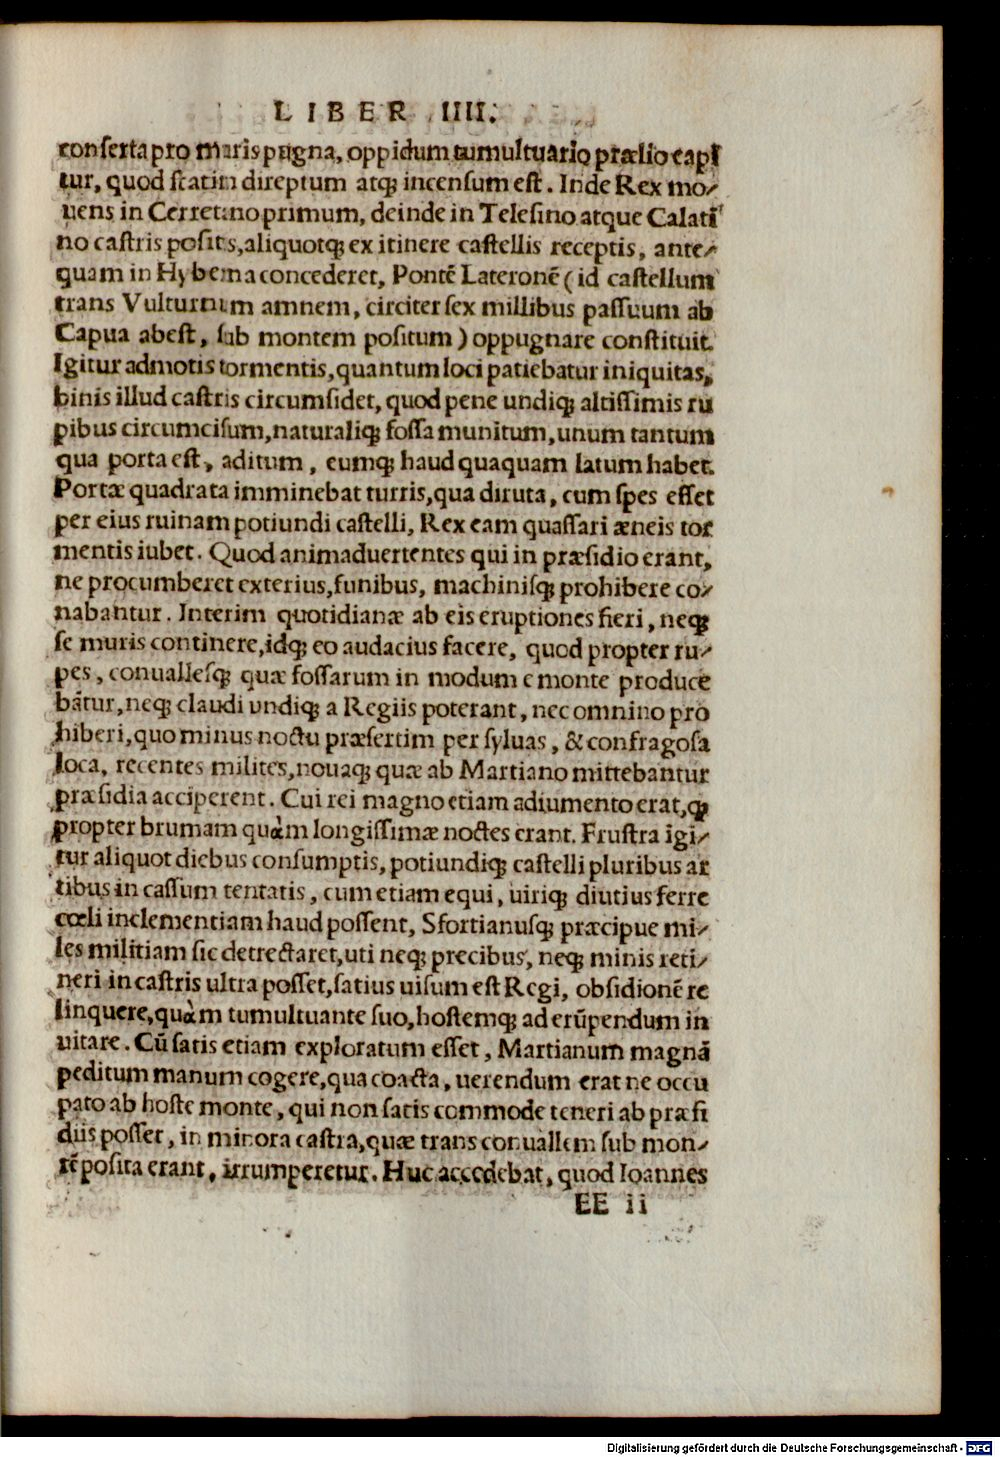 LIBER IIII.
conserta pro muris pugna, oppidum tumultuario prælio capi
tur, quod statim direptum atq; incensum est. Inde Rex mo-
uens in Cerretano primum, deinde in Telesino atque Calati
no castris positis, aliquotq; ex itinere castellis receptis, ante-
quam in Hyberna concederet, Pontē Lateronē (id castellum
trans Vulturnum amnem, circiter sex millibus passuum ab
Capua abest, sub montem positum) oppugnare constituit.
Igitur admotis tormentis, quantum loci patiebatur iniquitas,
binis illud castris circumsidet, quod pene undiq; altissimis ru
pibus circumcisum, naturaliq; fossa munitum, unum tantum
qua porta est, aditum, eumq; haud quaquam latum habet.
Portæ quadrata imminebat turris, qua diruta, cum spes esset
per eius ruinam potiundi castelli, Rex eam quassari æneis tor
mentis iubet. Quod animaduertentes qui in præsidio erant,
ne procumberet exterius, funibus, machinisq; prohibere co-
nabantur. Interim quotidianæ ab eis eruptiones fieri, neq;
se muris continere, idq; eo audacius facere, quod propter ru-
pes, conuallesq; quæ fossarum in modum e monte produce
bātur, neq; claudi undiq; a Regiis poterant, nec omnino pro
hiberi, quo minus noctu præsertim per syluas, & confragosa
loca, recentes milites, nouaq; quæ ab Martiano mittebantur
præsidia acciperent. Cui rei magno etiam adiumento erat, q;
propter brumam quàm longissimæ noctes erant. Frustra igi-
tur aliquot diebus consumptis, potiundiq; castelli pluribus ar
tibus in cassum tentatis, cum etiam equi, uiriq; diutius ferre
cœli inclementiam haud possent, Sfortianusq; præcipue mi-
les militiam sic detrectaret, uti neq; precibus, neq; minis reti-
neri in castris ultra posset, satius uisum est Regi, obsidionē re
linquere, quàm tumultuante suo, hostemq; ad erūpendum in
uitare. Cū satis etiam exploratum esset, Martianum magnā
peditum manum cogere, qua coacta, uerendum erat ne occu
pato ab hoste monte, qui non satis commode teneri ab præsi
diis posset, in minora castra, quæ trans conuallem sub mon-
tē posita erant, irrumperetur. Huc accedebat, quod Ioannes
EE ii
Digitalisierung gefördert durch die Deutsche Forschungsgemeinschaft - DFG